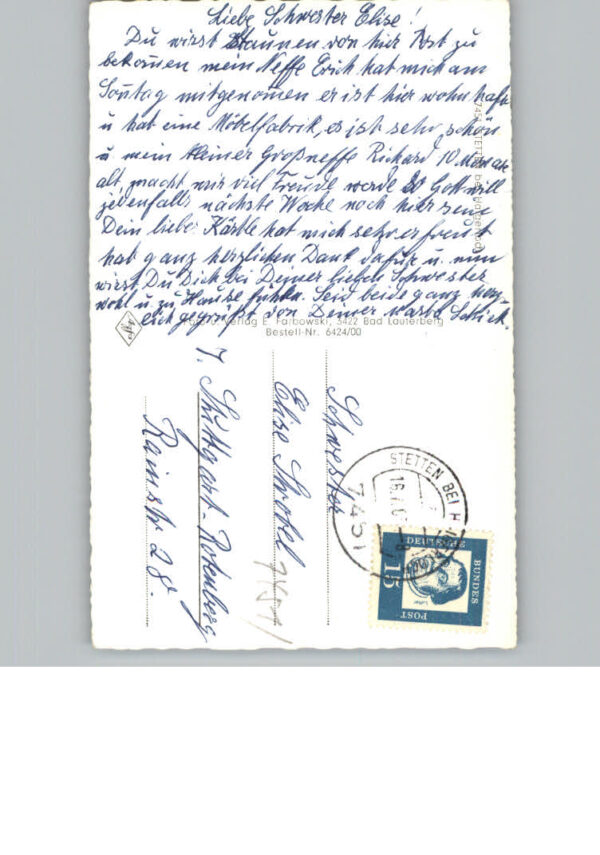 Liebe Schwester Elise!
Du wirst staunen von hier Post zu
bekommen mein Neffe Erich hat mich am
Sontag mitgenomen er ist hier wohnhaft
u hat eine Möbelfabrik, es ist sehr schön
u mein kleiner Großneffe Richard 10 Monate
alt, macht mir viel Freude werde so Gott will
jedenfalls nächste Woche noch hier sein
Dein liebes Kärtle hat mich sehr erfreut
hab ganz herzlichen Dank dafür u. nun
wirst Du Dich bei Deiner lieben Schwester
wohl u. zu Hause fühlen. Seid beide ganz herz-
lich gegrüßt von Deiner
Verlag E. Farbowski, 3422 Bad Lauterberg
Bestell-Nr. 6424/00
Schwester
Elise Strobel
7451
7. Stuttgart-Rotenberg
Rainstr 28.
STETTEN BEI H
7451
DEUTSCHE
BUNDES
POST
15
Luther